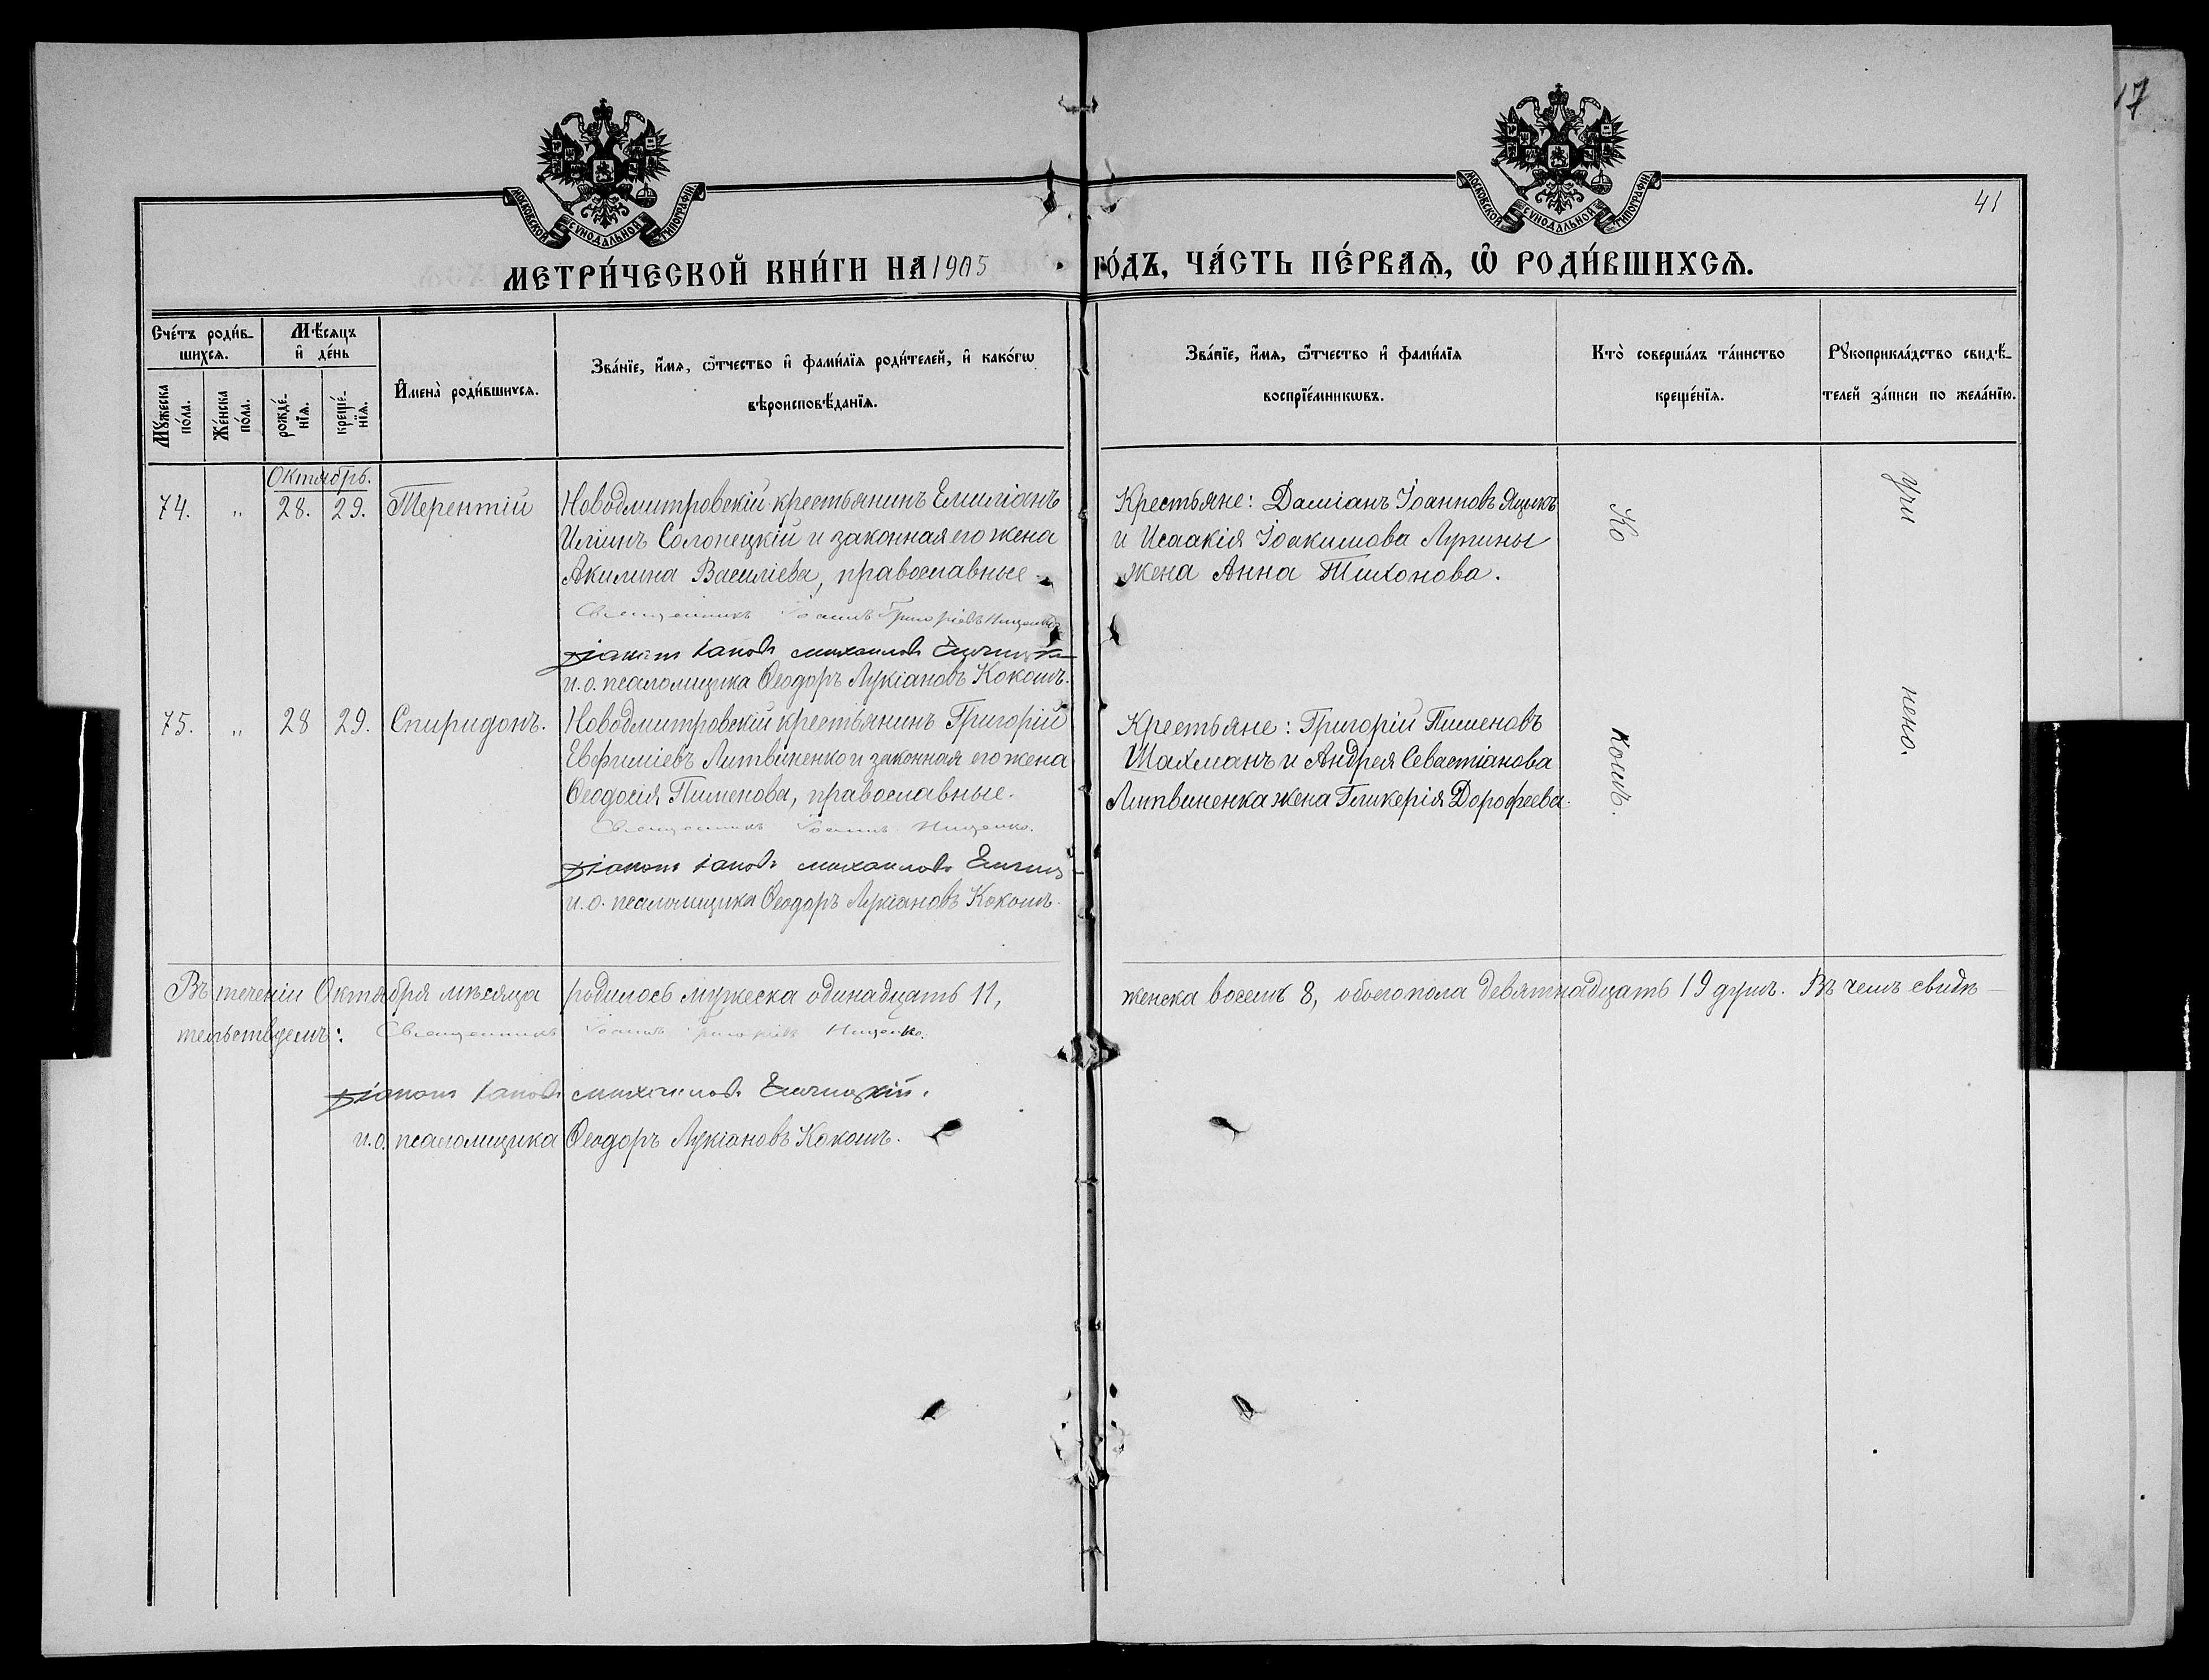 17
41
МОСКОВСКОЙ СУНОДАЛЬНОЙ ТИПОГРАФІИ
МОСКОВСКОЙ СУНОДАЛЬНОЙ ТИПОГРАФІИ
МЕТРИ́ЧЕСКОЙ КНИ́ГИ НА 1905 ГО́ДЪ, ЧА́СТЬ ПЕ́РВАѦ, Ѡ҆ РОДИ́ВШИХСѦ.
Сче́тъ роди́в-
шихсѧ.
Мꙋ́жеска
по́ла.
Же́нска
по́ла.
Мѣ́сѧцъ
и҆ де́нь
рожде́-
нїѧ.
креще́-
нїѧ.
И҆мена̀ роди́вшихсѧ.
Зва́нїе, и҆́мѧ, ѻ҆́тчество и҆ фами́лїѧ роди́телей, и҆ како́гѡ
вѣроисповѣ́данїѧ.
Зва́нїе, и҆́мѧ, ѻ҆́тчество и҆ фами́лїѧ
воспрїе́мникѡвъ.
Кто̀ соверша́лъ та́инство
креще́нїѧ.
Рꙋкоприкла́дство свидѣ́-
телей за́писи по жела́нїю.
Октябрь.
74. „ 28. 29. Терентій
Новодмитровскій крестьянинъ Емиліанъ
Иліинъ Солонецкій и законная его жена
Акилина Василіева, православные.
Священникъ Іоаннъ Григоріевъ Нищенко
Діаконъ Іаковъ Михаиловъ
и.о. псаломщика Ѳеодоръ Лукіановъ Кокошъ.
Крестьяне: Даміанъ Іоанновъ Яцыкъ
и Исаакія Іоакимова Лупины
жена Анна Тихонова.
75. „ 28 29. Спиридонъ.
Новодмитровскій крестьянинъ Григорій
Евфиміевъ Литвиненко и законная его жена
Ѳеодосія Пименова, православные.
Священникъ Іоаннъ Нищенко.
Діаконъ Іаковъ Михаиловъ
и.о. псаломщика Ѳеодоръ Лукіановъ Кокошъ.
Крестьяне: Григорій Пименовъ
Шахманъ и Андрея Севастіанова
Литвиненка жена Гликерія Дорофеева.
Ко
кошъ.
Учи
нено.
Въ теченіи Октября мѣсяца родилось мужеска одинадцать 11, женска восемь 8, обоего пола девятнадцать 19 душъ. Въ чемъ свидѣ-
тельствуемъ: Священникъ Іоаннъ Григоріевъ Нищенко.
Діаконъ Іаковъ Михаиловъ
и.о. псаломщика Ѳеодоръ Лукіановъ Кокошъ.